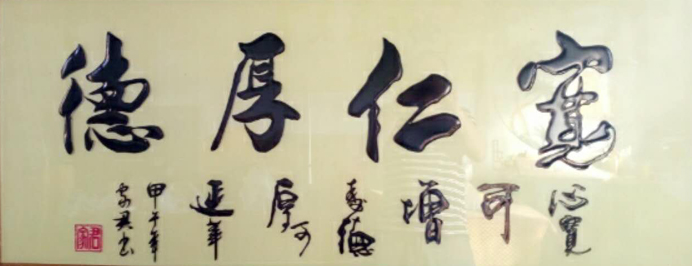 寬仁厚德
心寬可增壽德厚可延年
甲午年